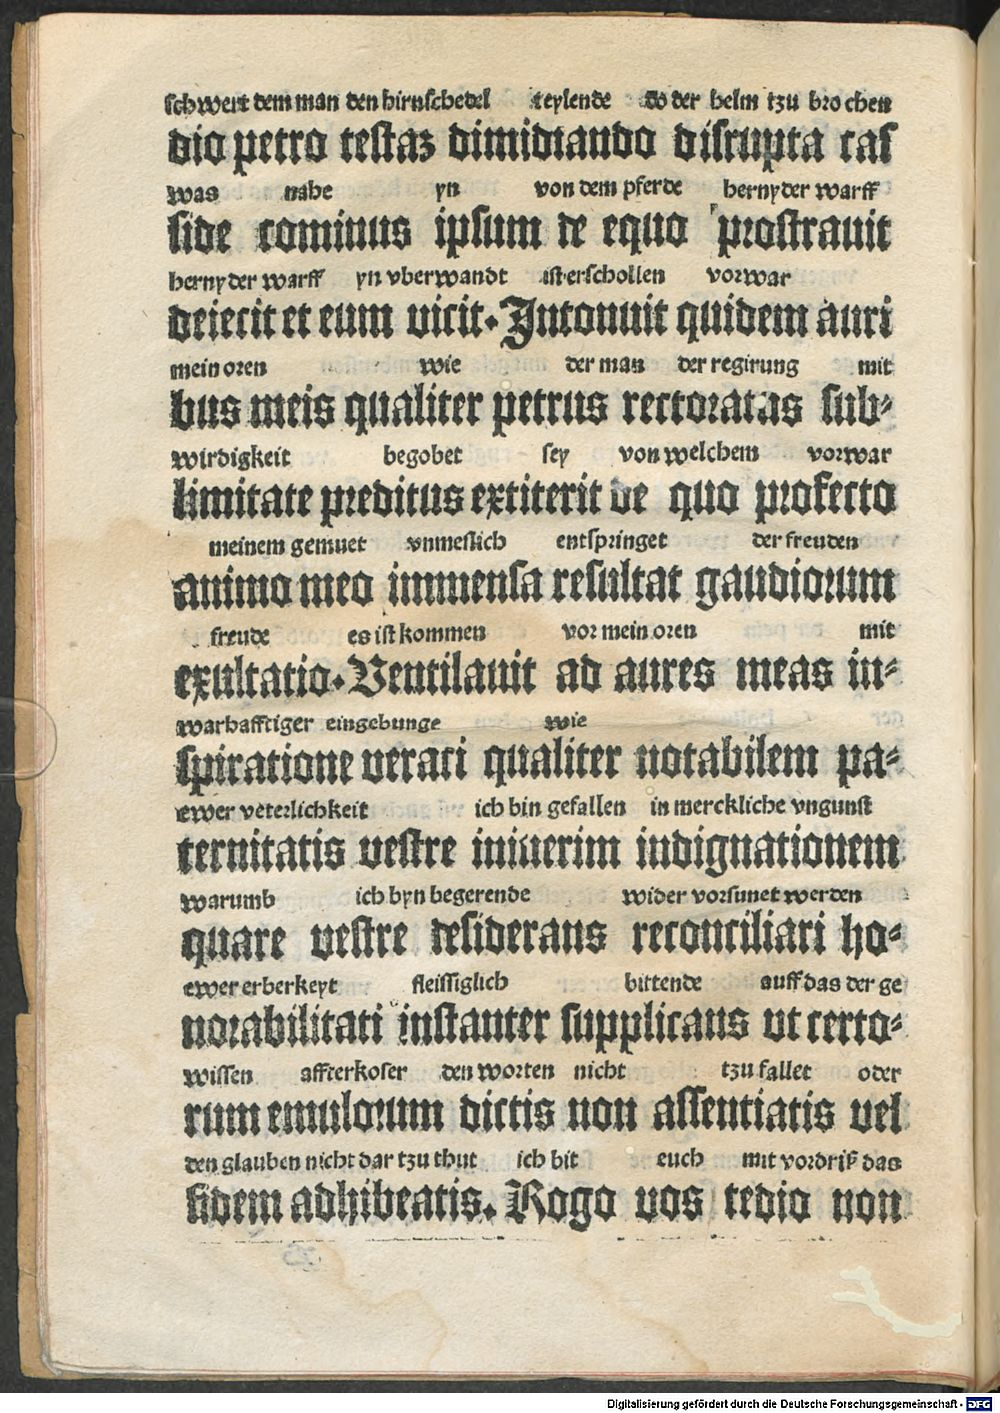 schwert dem man den hirnschedel teylende do der helm tzu brochen
dio petro testaz dimidiando disrupta cas
was nahe yn von dem pferde hernyder warff
side cominus ipsum de equo prostrauit
hernyder warff yn vberwandt ist erschollen vorwar
deiecit et eum vicit. Intonuit quidem auri
mein oren wie der man der regirung mit
bus meis qualiter petrus rectoratas sub⸗
wirdigkeit begobet sey von welchem vorwar
limitate preditus extiterit de quo profecto
meinem gemuet vnmeslich entspringet der freuden
animo meo immensa resultat gaudiorum
freude es ist kommen vor mein oren mit
exultatio. Ventilauit ad aures meas in⸗
warhafftiger eingebunge wie
spiratione veraci qualiter notabilem pa⸗
ewer veterlichkeit ich bin gefallen in merckliche vngunst
ternitatis vestre iniuerim indignationem
warumb ich byn begerende wider vorsunet werden
quare vestre desiderans reconciliari ho⸗
ewer erberkeyt fleissiglich bittende auff das der ge
norabilitati instanter supplicans vt certo⸗
wissen affterkoser den worten nicht tzu fallet oder
rum emulorum dictis non assentiatis vel
den glauben nicht dar tzu thut ich bit euch mit vordriß das
fidem adhibeatis. Rogo vos tedio non
Digitalisierung gefördert durch die Deutsche Forschungsgemeinschaft - DFG